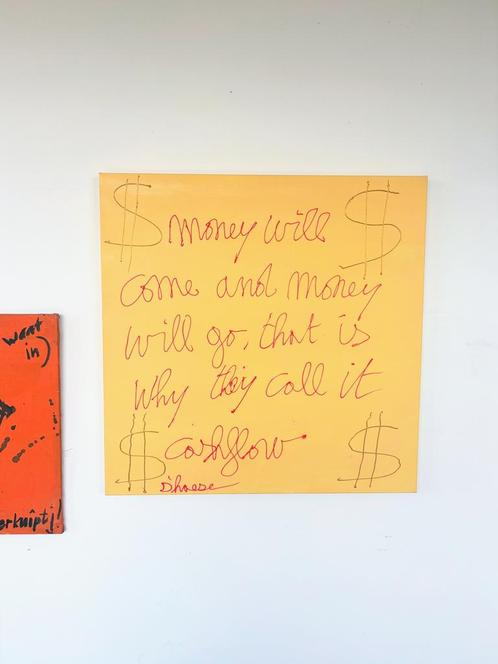 $ money will $
come and money
will go, that is
why they call it
$ cashflow $
D'haese
want
in)
erknipt j!